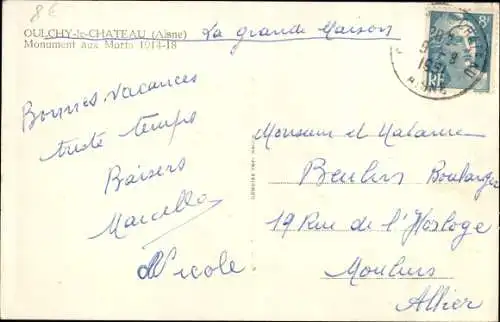 8€
OULCHY-le-CHATEAU (Aisne)
Monument aux Morts 1914-18
La grande Maison
Bonnes vacances
triste temps
Baisers
Marcelle
Nicole
Monsieur et Madame
Beulin Boulanger
19 Rue de l'Horloge
Moulins
Allier
RF
AISNE